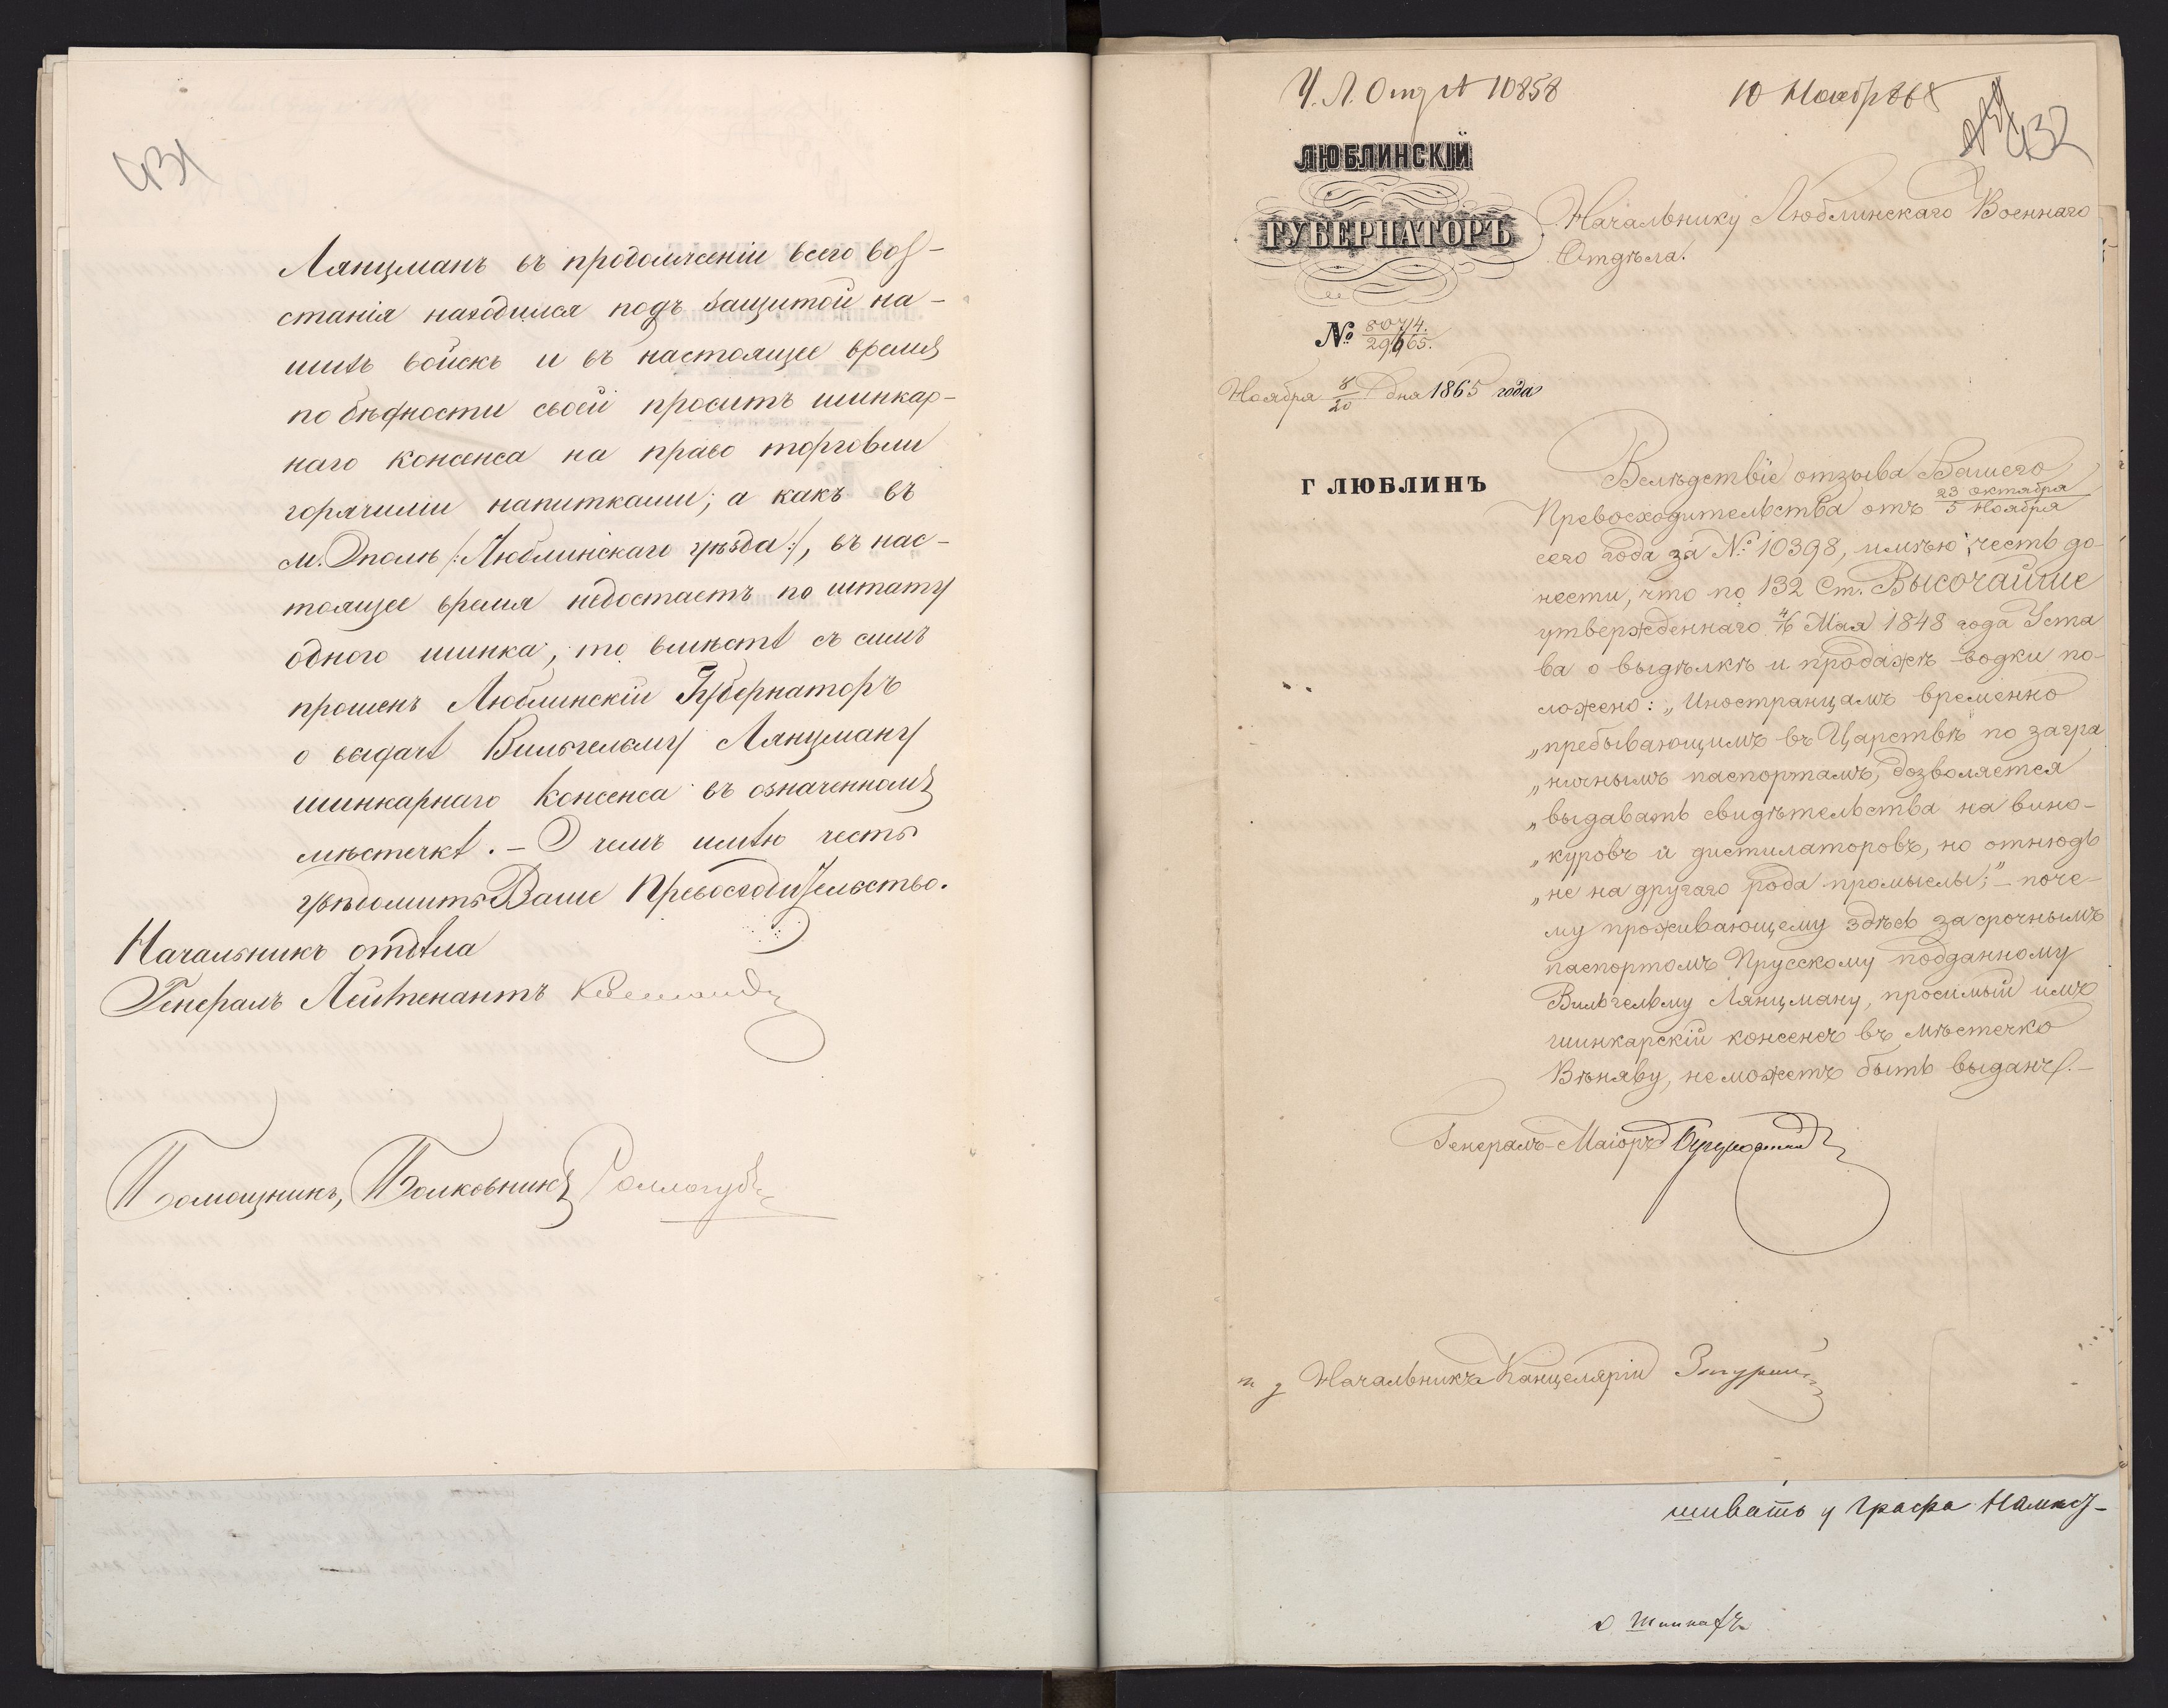 431
Лянцманъ въ продолженіи всего воз-
станія находился подъ защитой на-
шихъ войскъ и въ настоящее время
по бѣдности своей проситъ шинкар-
наго консенса на право торговли
горячими напитками; а какъ въ
м. Ополѣ /:Люблинскаго уѣзда:/, въ нас-
тоящее время недостаетъ по штату
одного шинка, то вмѣстѣ съ симъ
прошенъ Люблинскій Губернаторъ
о выдачѣ Вильгельму Лянцману
шинкарнаго консенса въ означенномъ
мѣстечкѣ. – О чемъ имѣю честь
увѣдомить Ваше Превосходительство.
Начальникъ отдѣла
Генералъ Лейтенантъ
Помощникъ, Полковникъ
У. Л. Отд № 10858
10 Ноябр 865
432
ЛЮБЛИНСКІЙ
ГУБЕРНАТОРЪ
№ 8074. / 29665.
Ноября 8/20 дня 1865 года
Г ЛЮБЛИНЪ
Начальнику Люблинскаго Военнаго
Отдѣла.
Вслѣдствіе отзыва Вашего
Превосходительства отъ 23 Октября / 5 Ноября
сего года за № 10398, имѣю честь до-
нести, что по 132 Ст. ВЫСОЧАЙШЕ
утвержденнаго 4/16 Мая 1848 года Уста
ва о выдѣлкѣ и продажѣ водки по-
ложено: „Иностранцамъ временно
„пребывающимъ въ Царствѣ по загра
„ничнымъ паспортамъ, дозволяется
„выдавать свидѣтельства на вино-
„куровъ и дистилаторовъ, но отнюдь
„не на другаго рода промыслы;" – поче-
му проживающему здѣсь за срочнымъ
паспортомъ Прусскому подданному
Вильгельму Лянцману, просимый имъ
шинкарскій консенсъ въ мѣстечко
Вѣняву, не можетъ быть выданъ. –
Генералъ-Маіоръ
и д Начальникъ Канцеляріи
шивать у Графа
о шинкахъ